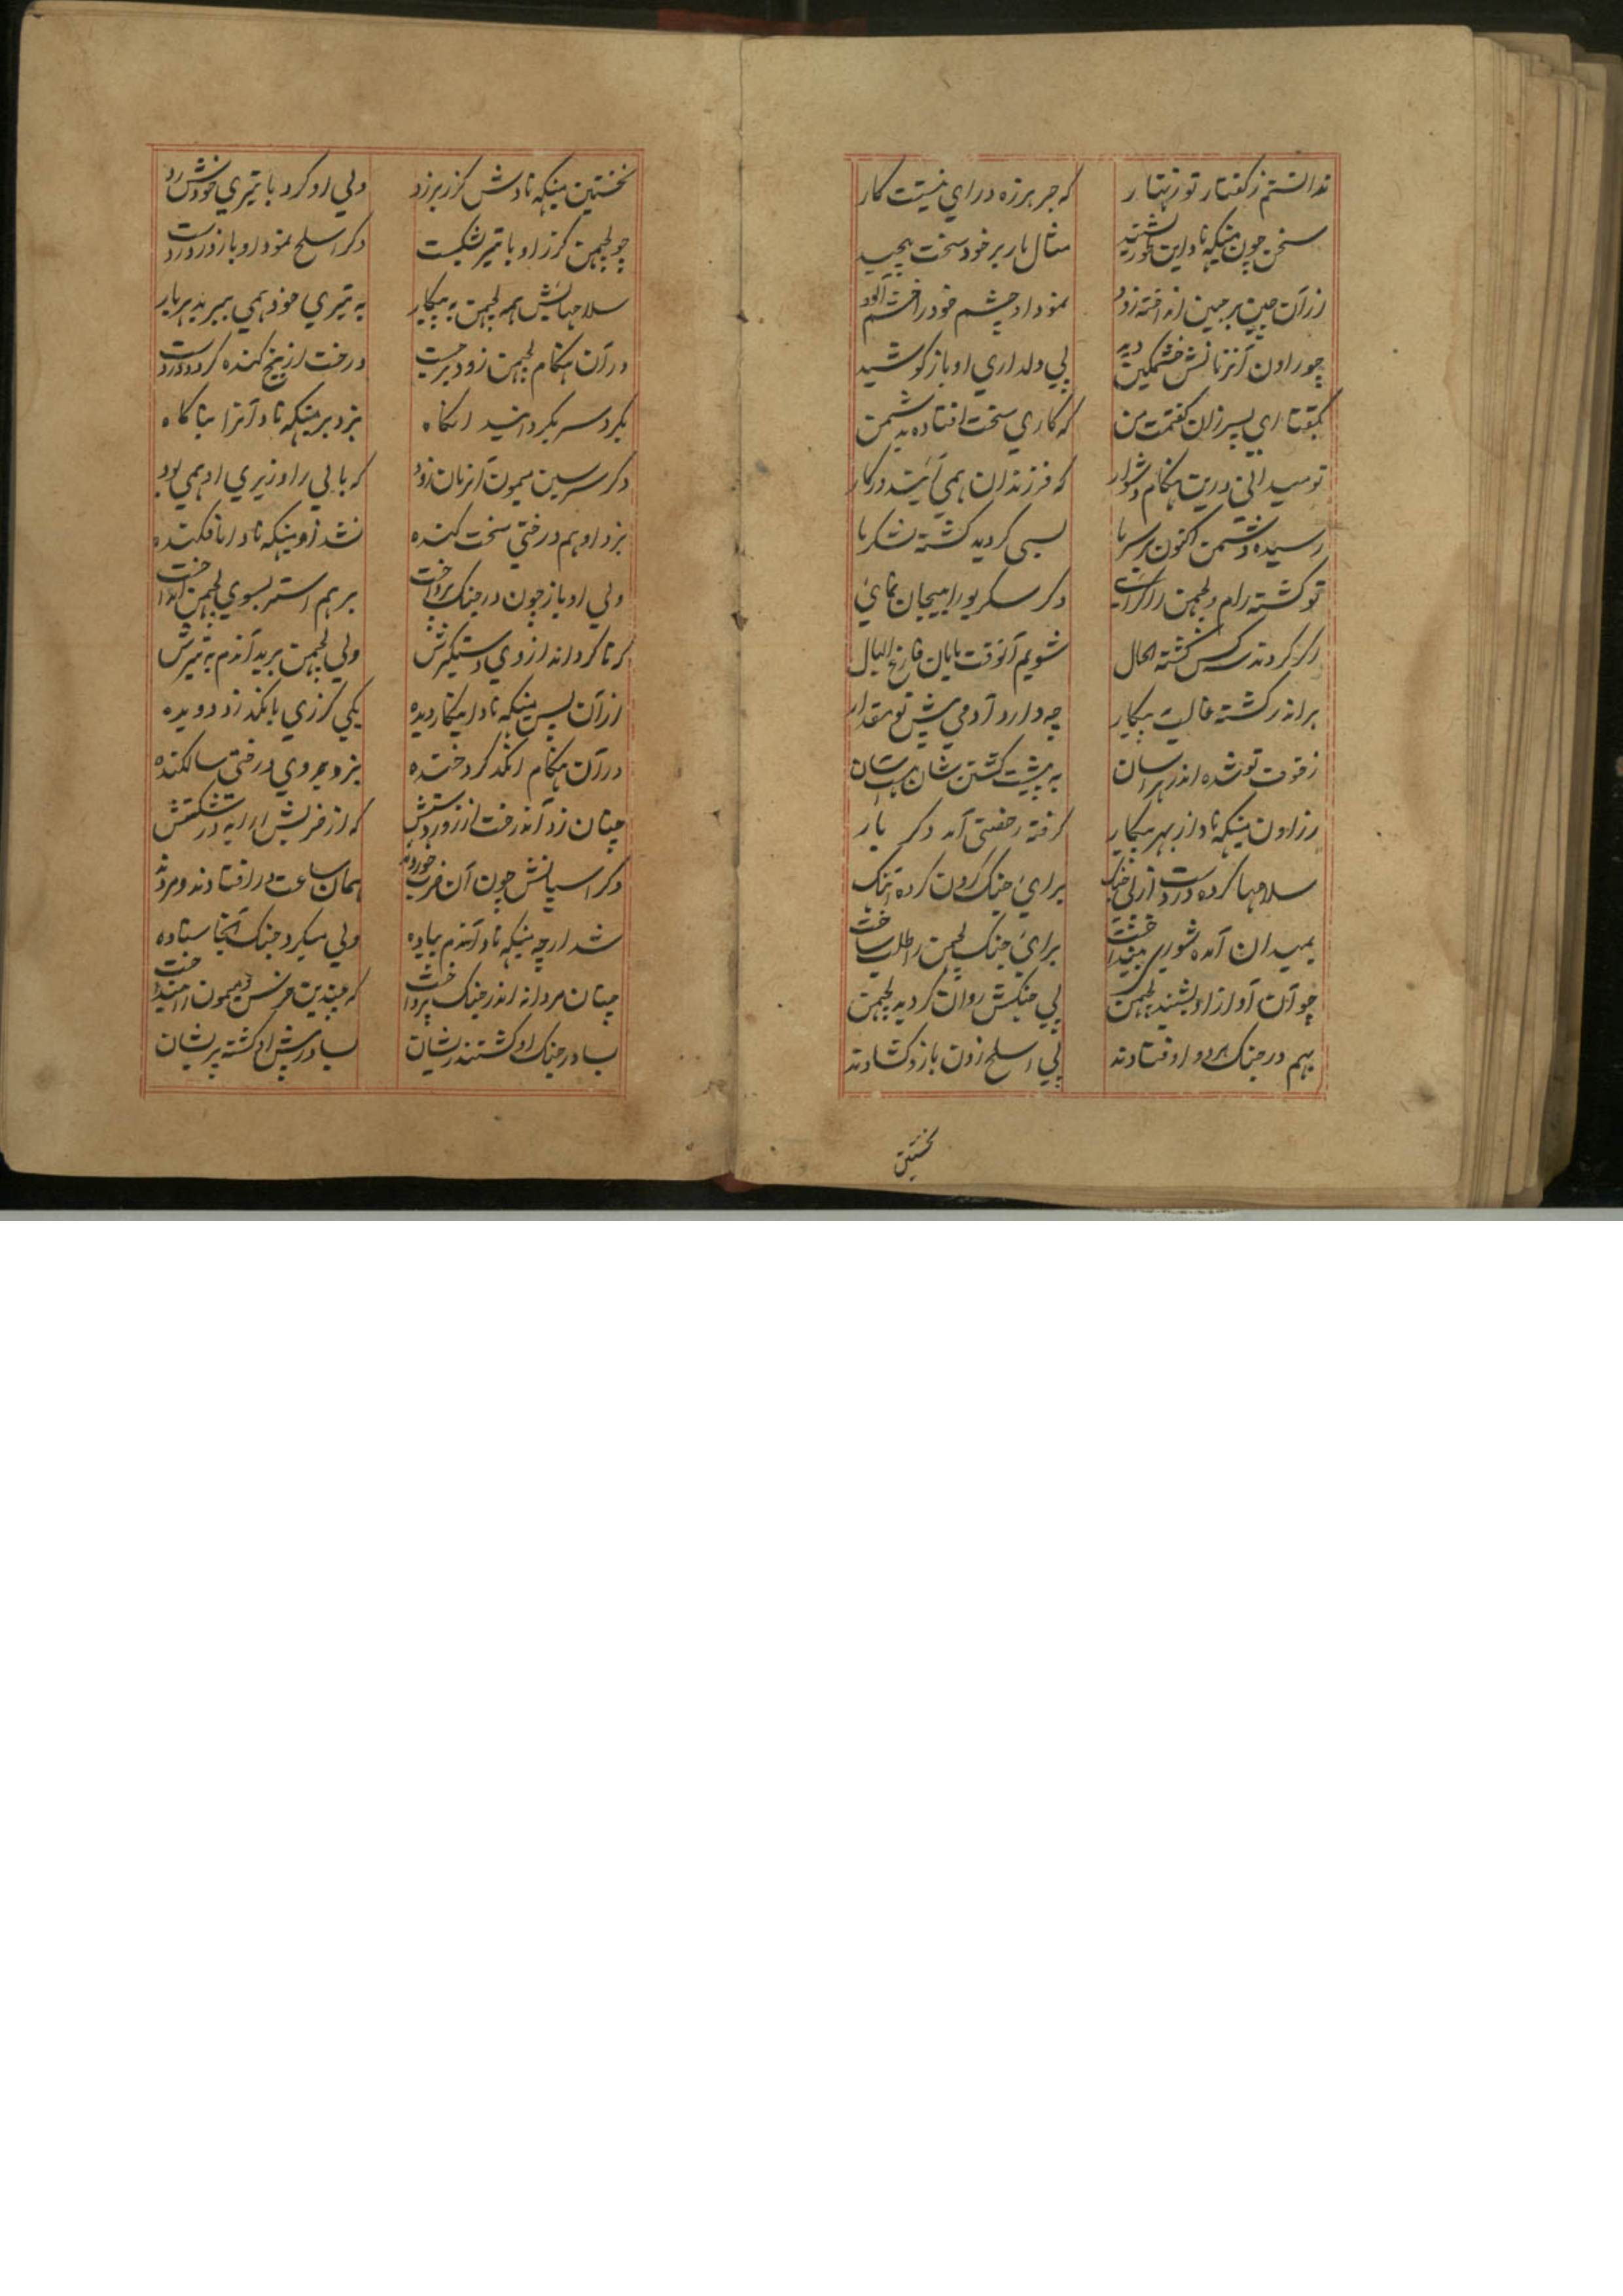 ندانستم ز گفتار تو زنهار که جز هرزه درای نیست کار
سخن چون مینکه ناد این طور بشنید مثال مار بر خود سخت پیچید
از آن چین بر جبین انداخته زود نمود او چشم خود را خشم آلود
چو راون آنزمانش خشمگین دید پی دلداری او باز کوشید
بگفتا ای پسر زان گفتمت من که کاری سخت افتاده به دشمن
تو میدانی درین هنگام دشوار که فرزندان همی آیند در کار
رسیده دشمن اکنون بر سر ما بسی گردید کشته لشکر ما
تو کشته رام و لچهمن را دگر سکریو را بیجان نمای
اگر کردند س کس کشته الحال شویم آنوقت مایان فارغ البال
بر اندر کشته غالب به پیکار چه دارد آدمی پیش تو مقدار
ز قوت تو شده اندر هراسان به پیشت کشتن شان هست آسان
ز راون مینکه ناد از بهر پیکار گرفته رخصتی آمد دگر بار
سلاحها کرده در دست از پی جنگ برای جنگ گردون کرده آهنگ
بمیدان آمده شوری برای جنگ لچهمن را طلب ساخت
چو آن آواز او بشنید لچهمن پی جنگش روان گردید لچهمن
بهم در جنگ هر دو اوفتادند پی اسلح زدن بازو گشادند
نخستین
نخستین مینکه نادش گرز بر زد ولی او کرد با تیری خودش رد
چو لچهمن گرز او با تیر بشکست دگر اسلح نمود او باز در دست
سلاحهایش همه لچهمن به پیکار به تیری خود همی ببرید هر بار
در آن هنگام لچهمن زود برجست درخت از بیخ کنده کرد در دست
بگرد سر بگردانید آنگاه بزد بر مینکه ناد آنرا بناگاه
دگر سرسین میمون آنزمان زود که بالی را وزیری او همی بود
بزد او هم درختی سخت کنده نشد زو مینکه ناد افکنده
ولی او باز چون در جنگ پرداخت برهم استر بسوی لچهمن انداخت
که تا گرداند از وی دستگیرش ولی لچهمن برید آندم به تیرش
از آن پس مینکه ناد اینکار دیده یکی گرزی بانگد زد دویده
در آن هنگام انگد کرد خنده بزد بر وی درختی سالکنده
چنان زد آن درخت از زور دستش که از ضربش ارابه در شکستش
دگر اسپانش چون آن ضرب خوردند همان ساعت در افتادند و مردند
شد ارچه مینکه ناد آندم پیاده ولی میکرد جنگ آنجا ستاده
چنان مردانه اندر جنگ پرداخت که چندین خرس و میمون را بینداخت
بسا در جنگ او گشتند ریشان بسا در پیش او گشته پریشان